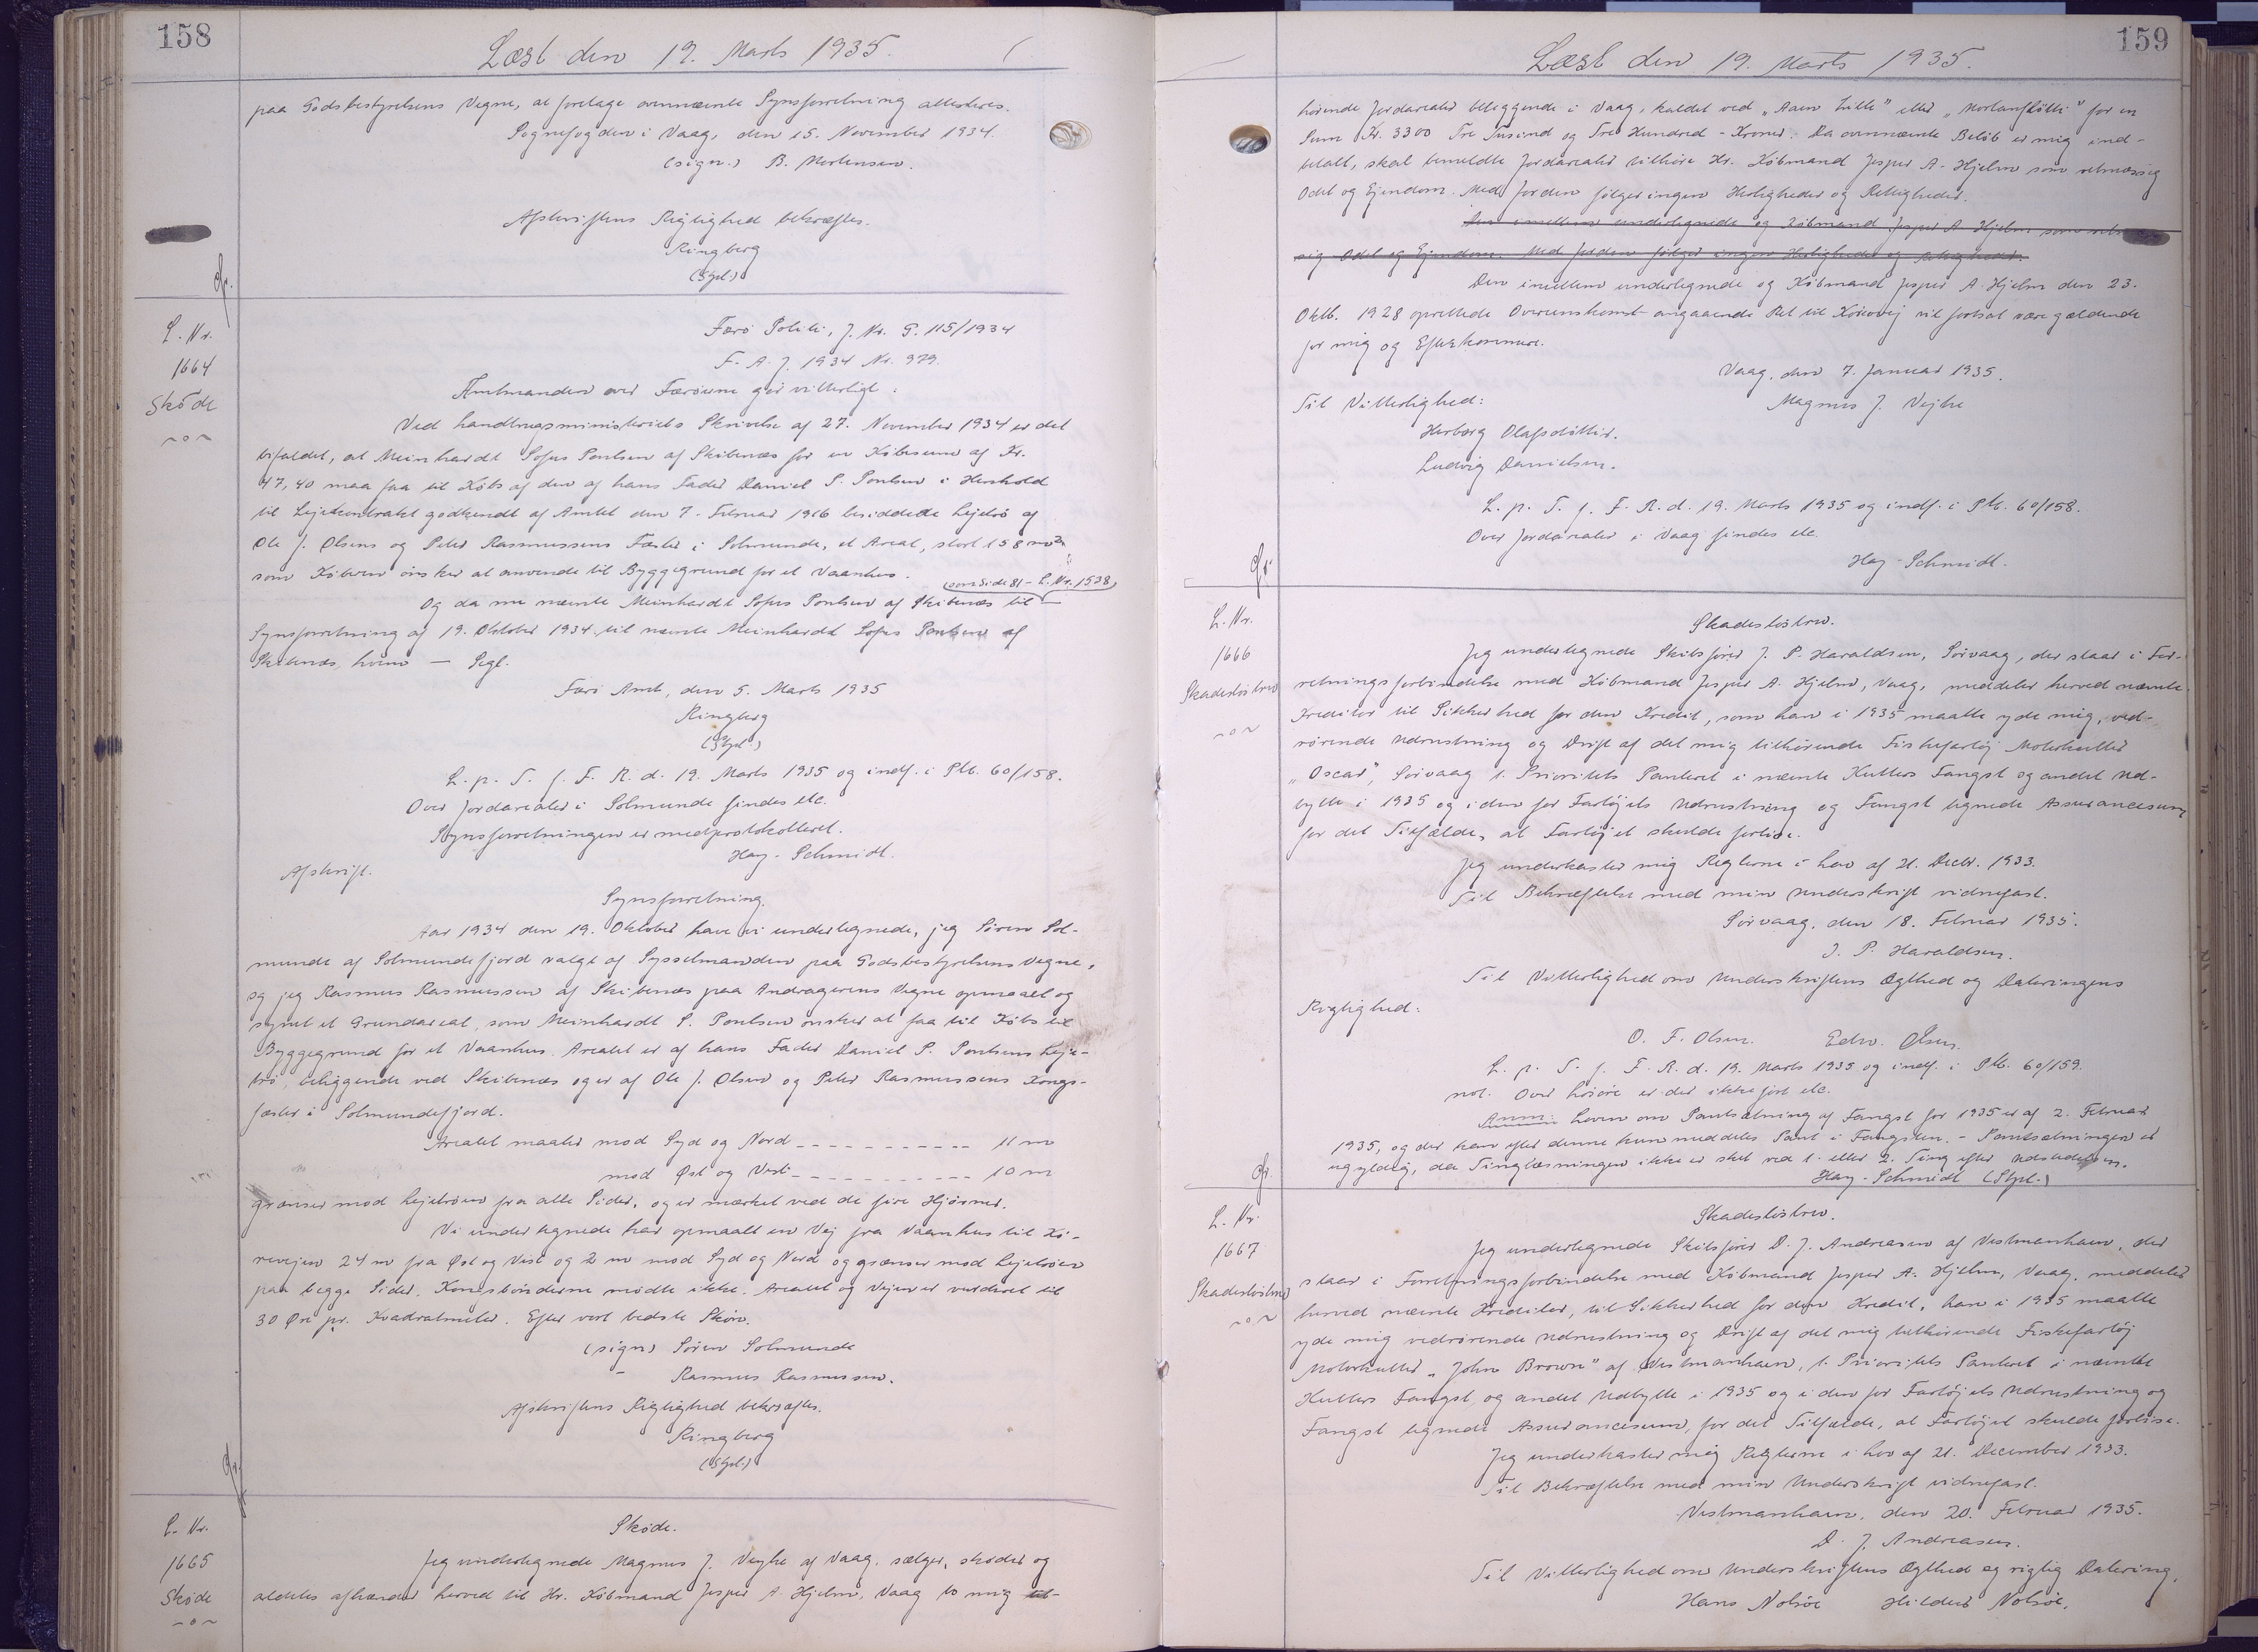 158
Læst den 19. Marts 1935.
paa Godsbestyrelsens Vegne, at foretage ovennævnte Synsforretning attesteres.
Sognefogden i Vaag, den 15. November 1934.
(sign.) B. Mortensen.
Afskriftens Rigtighed bekræftes.
Ringberg
(Stpl.)
L. Nr.
1664
Skøde
Færø Politi, J. Nr. G. 115/1934
F. A. J. 1934 Nr. 979.
Amtmanden over Færøerne gør vitterligt:
Ved Landbrugsministeriets Skrivelse af 27. November 1934 er det
bifaldet, at Meinhardt Sofus Poulsen af Skibenæs for en Købesum af Kr.
47,40 maa faa til Købs af den af hans Fader Daniel P. Poulsen i Henhold
til Lejekontrakt godkendt af Amtet den 7. Februar 1916 besiddede Lejetrø af
Ole J. Olsens og Peter Rasmussens Fæster i Solmunde, et Areal, stort 158 m²,
som Køberen ønsker at anvende til Byggegrund for et Vaanhus.
(som Side 81 - L. Nr. 1538)
Og da nu nævnte Meinhardt Sofus Poulsen af Skibenæs til —
Synsforretning af 19. Oktober 1934 til nævnte Meinhardt Sofus Poulsen af
Skibenæs, hvem — Segl.
Færø Amt, den 5. Marts 1935
Ringberg
(Stpl.)
L. p. T. f. F. R. d. 19. Marts 1935 og indf. i Ptb. 60/158.
Over Jordarealer i Solmunde findes etc.
Synsforretningen er medprotokolleret.
Hay-Schmidt.
Afskrift.
Synsforretning.
Aar 1934 den 19. Oktober have vi undertegnede, jeg Søren Sol-
munde af Solmundefjord valgt af Sysselmanden paa Godsbestyrelsens Vegne,
og jeg Rasmus Rasmussen af Skibenæs paa Andragerens Vegne opmaalt og
synet et Grundareal, som Meinhardt S. Poulsen ønsker at faa til Købs til
Byggegrund for et Vaanhus. Arealet er af hans Fader Daniel P. Poulsens Leje-
trø, beliggende ved Skibenæs og er af Ole J. Olsens og Peter Rasmussens Konge-
fæster i Solmundefjord.
Arealet maaler mod Syd og Nord - - - - - - - - - - - - 11 m
mod Øst og Vest - - - - - - - - - - - - 10 m
grænser mod Lejetrøen fra alle Sider, og er mærket ved de fire Hjørner.
Vi undertegnede har opmaalt en Vej fra Vaanhus til Kø-
revejen 24 m fra Øst og Vest og 2 m mod Syd og Nord og grænser mod Lejetrøen
paa begge Sider. Kongsbønderne mødte ikke. Arealet og Vejen er vurderet til
30 Øre pr. Kvadratmeter. Efter vort bedste Skøn.
(sign) Søren Solmunde
- Rasmus Rasmussen.
Afskriftens Rigtighed bekræftes.
Ringberg
(Stpl.)
L. Nr.
1665
Skøde
Skøde.
Jeg undertegnede Magnus J. Vejhe af Vaag, sælger, skøder og
aldeles afhænder herved til Hr. Købmand Jesper A. Hjelm, Vaag to mig til-
159
Læst den 19. Marts 1935.
hørende Jordarealer beliggende i Vaag, kaldet ved „Aaen Lille" eller „ " for en
Sum Kr. 3300 Tre Tusind og Tre Hundred - Kroner. Da ovennævnte Beløb er mig ind-
betalt, skal bemeldte Jordarealer tilhøre Hr. Købmand Jesper A. Hjelm som retmæssig
Odel og Ejendom. Med Jorden følger ingen Herligheder og Rettigheder.
Den imellem undertegnede og Købmand Jesper A. Hjelm som retmæs-
sig Odel og Ejendom. Med Jorden følger ingen Herligheder og Rettigheder.
Den imellem undertegnede og Købmand Jesper A. Hjelm den 23.
Oktb. 1928 oprettede Overenskomst angaaende Ret til Kørevej vil fortsat være gældende
for mig og Efterkommere.
Vaag, den 7. Januar 1935.
Til Vitterlighed: Magnus J. Vejhe
Herborg Olafsdóttir.
Ludvig Danielsen.
L. p. T. f. F. R. d. 19. Marts 1935 og indf. i Ptb. 60/158.
Over Jordarealer i Vaag findes etc.
Hay-Schmidt.
L. Nr.
1666
Skadesløsbrev
Skadesløsbrev.
Jeg undertegnede Skibsfører J. P. Haraldsen, Sørvaag, der staar i For-
retningsforbindelse med Købmand Jesper A. Hjelm, Vaag, meddeler herved nævnte
Kreditor til Sikkerhed for den Kredit, som han i 1935 maatte yde mig, ved-
rørende Udrustning og Drift af det mig tilhørende Fiskefartøj Motorkutter
„Oscar", Sørvaag 1. Prioritets Panteret i nævnte Kutters Fangst og andet Ud-
bytte i 1935 og i den for Fartøjets Udrustning og Fangst tegnede Assurancesum
for det Tilfælde, at Fartøjet skulde forlise.
Jeg underkaster mig Reglerne i Lov af 21. Decbr. 1933.
Til Bekræftelse med min Underskrift vidnefast.
Sørvaag, den 18. Februar 1935.
J. P. Haraldsen.
Til Vitterlighed om Underskriftens Ægthed og Dateringens
Rigtighed:
O. F. Olsen. Edv. Olsen.
L. p. T. f. F. R. d. 19. Marts 1935 og indf. i Ptb. 60/159.
not. Over Løsøre er der ikke ført etc.
Anm: Loven om Pantsætning af Fangst for 1935 er af 2. Februar
1935, og der kan efter denne kun meddeles Pant i Fangsten. - Pantsætningen er
ugyldig, da Tinglæsningen ikke er sket ved 1. eller 2. Ting efter Udstedelsen.
Hay-Schmidt (Stpl.)
L. Nr.
1667
Skadesløsbrev
Skadesløsbrev.
Jeg undertegnede Skibsfører D. J. Andreasen af Vestmanhavn, der
staar i Forretningsforbindelse med Købmand Jesper A. Hjelm, Vaag, meddeler
herved nævnte Kreditor, til Sikkerhed for den Kredit, han i 1935 maatte
yde mig vedrørende Udrustning og Drift af det mig tilhørende Fiskefartøj
Motorkutter „John Brown" af Vestmanhavn, 1. Prioritets Panteret i nævnte
Kutters Fangst og andet Udbytte i 1935 og i den for Fartøjets Udrustning og
Fangst tegnede Assurancesum, for det Tilfælde, at Fartøjet skulde forlise.
Jeg underkaster mig Reglerne i Lov af 21. December 1933.
Til Bekræftelse med min Underskrift vidnefast.
Vestmanhavn, den 20. Februar 1935.
D. J. Andreasen.
Til Vitterlighed om Underskriftens Ægthed og rigtig Datering,
Hans Nolsøe Hildur Nolsøe.